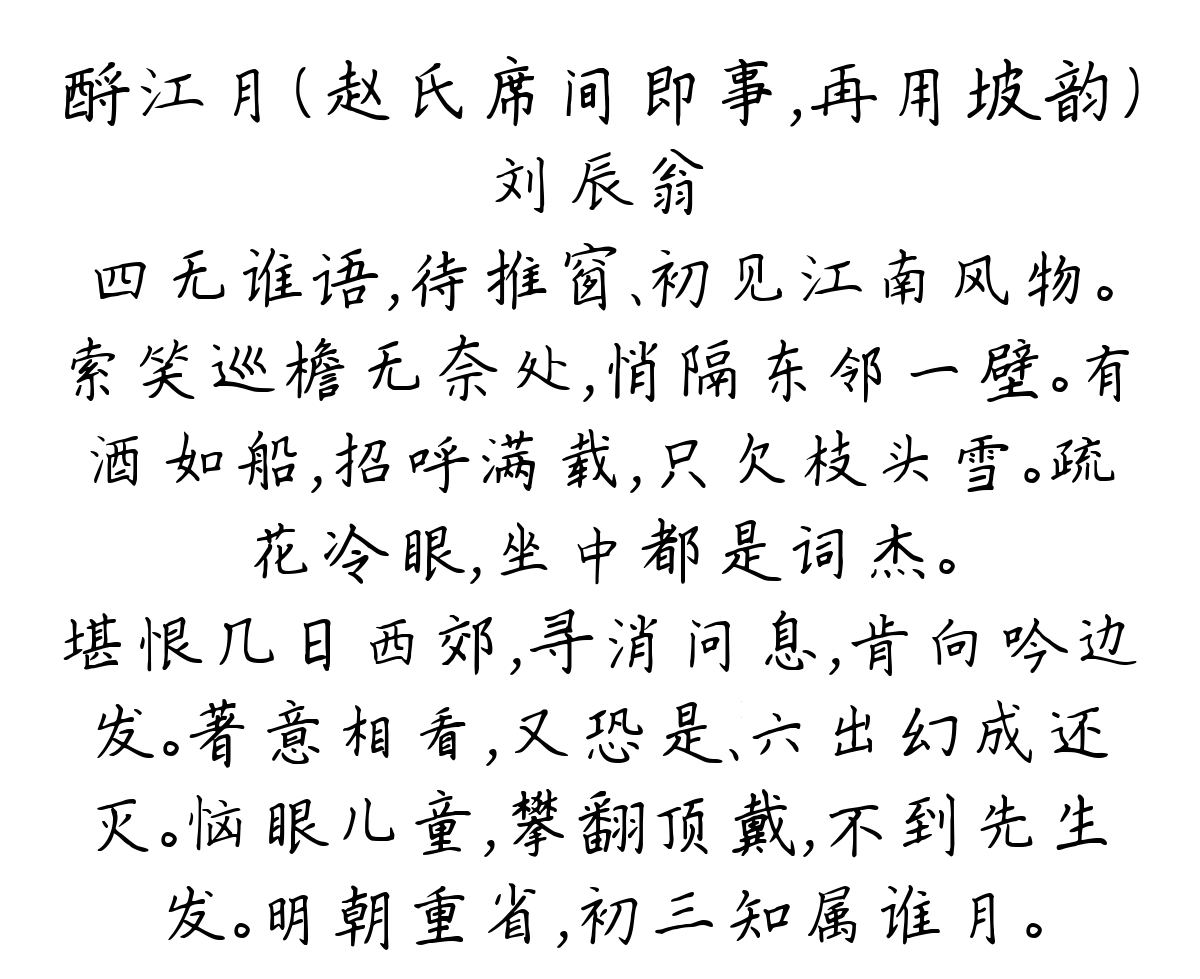 酹江月(赵氏席间即事,再用坡韵)
刘辰翁
四无谁语,待推窗、初见江南风物。
索笑巡檐无奈处,悄隔东邻一壁。有
酒如船,招呼满载,只欠枝头雪。疏
花冷眼,坐中都是词杰。
堪恨几日西郊,寻消问息,肯向吟边
发。著意相看,又恐是、六出幻成还
灭。恼眼儿童,攀翻顶戴,不到先生
发。明朝重省,初三知属谁月。